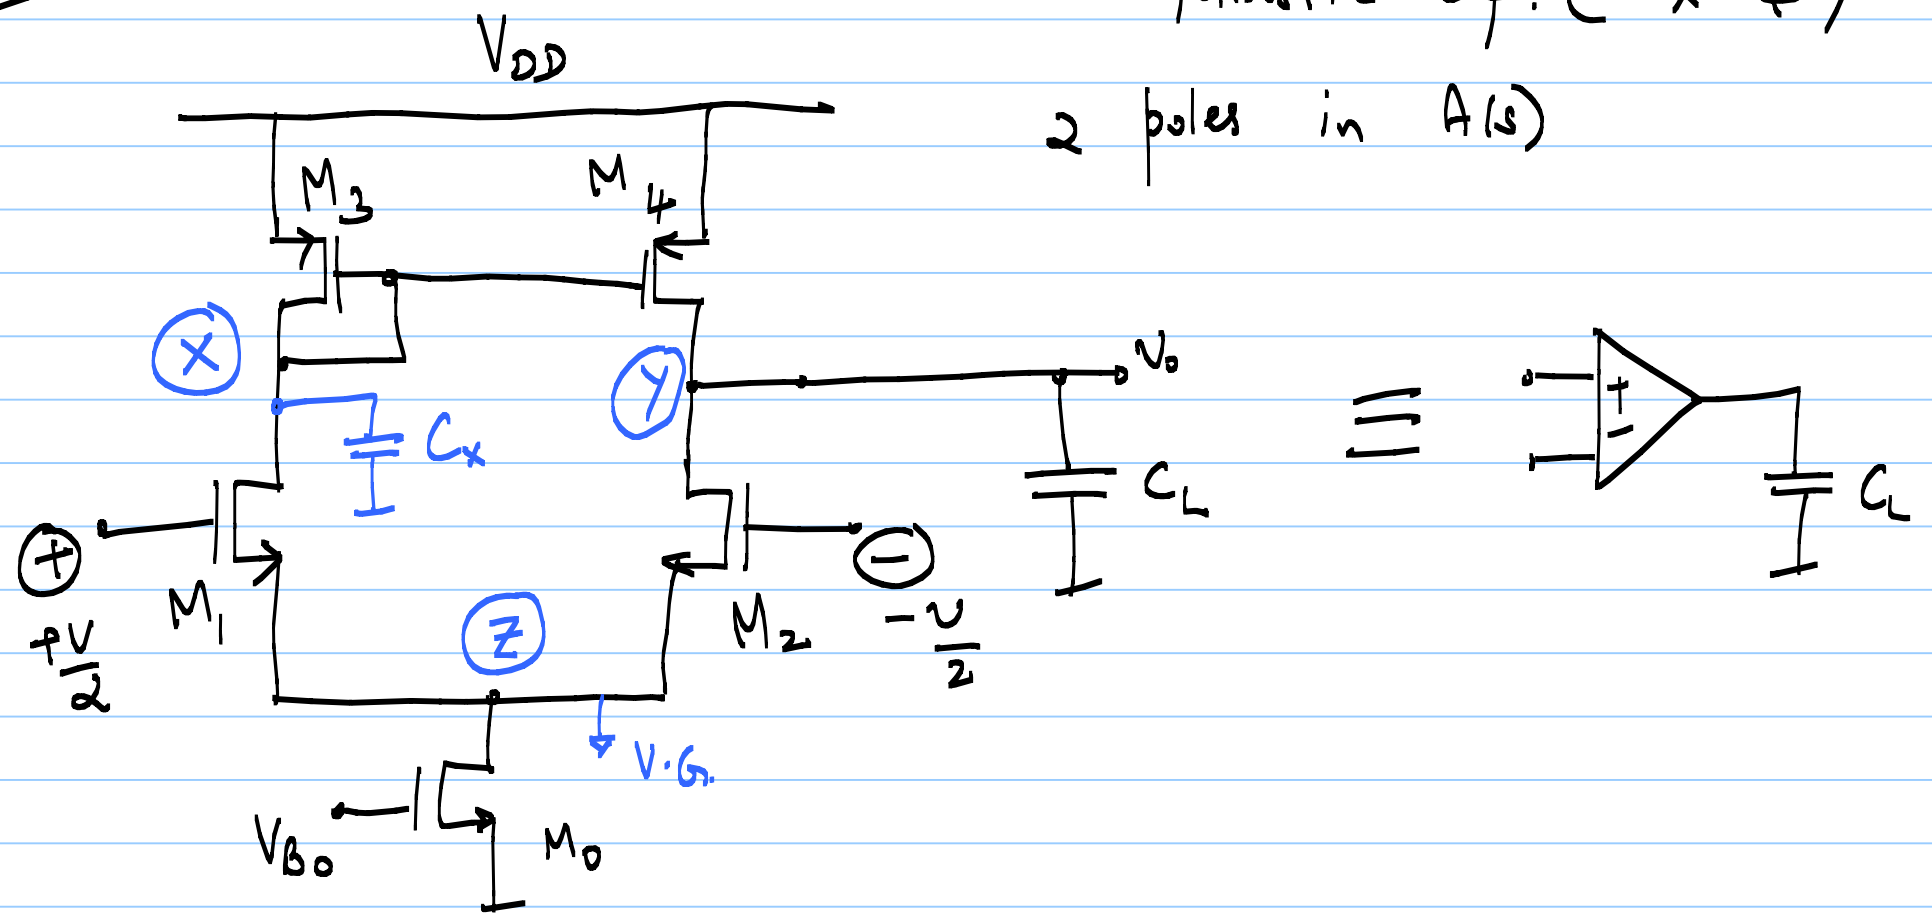 V_DD
2 poles in A(s)
M_3
M_4
X
Y
V_o
C_x
C_L
C_L
+
-
+
-
M_1
M_2
+V/2
-V/2
Z
V.G.
V_B0
M_0